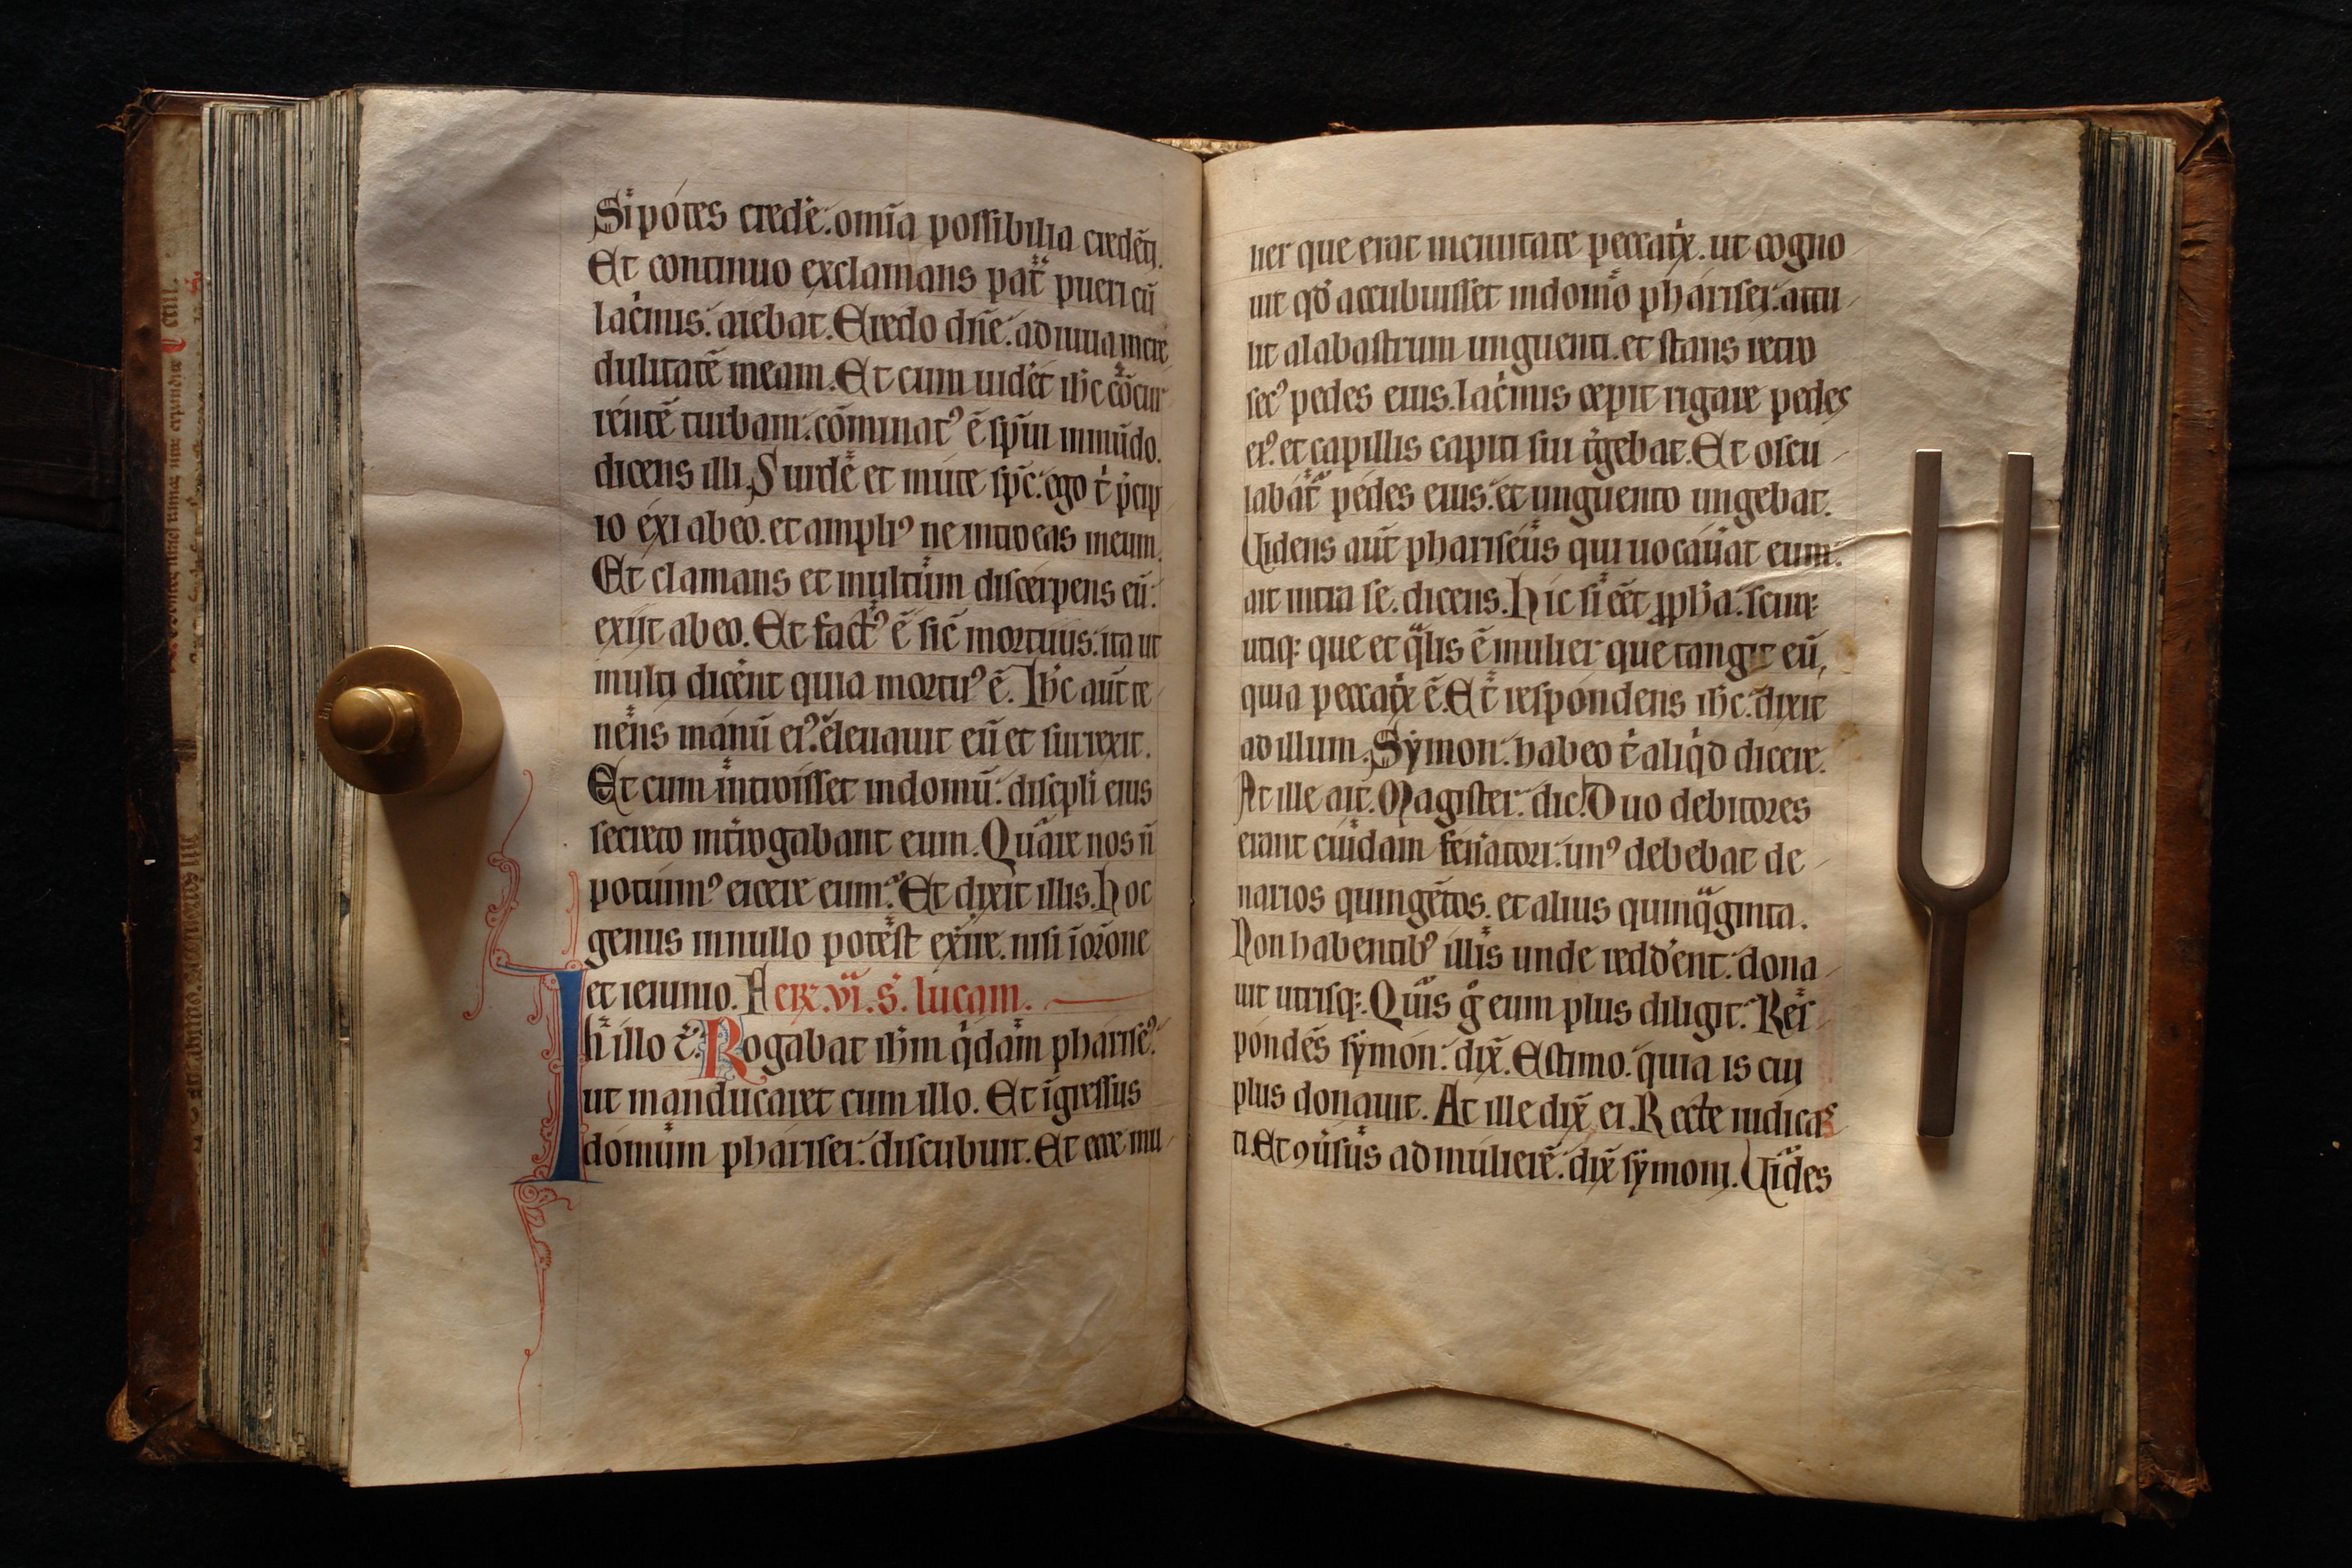 Si potes crede᷑: om̅ia possibilia credẽti.
Et continuo exclamans pat̃ pueri cũ
lac̾mis: aiebat. Credo dñe: adiuua incre
dulitatẽ meam. Et cum uidet ih̅c cõcur
rentẽ turbam: cõminatꝰ ẽ sp̅ui inmũdo.
dicens illi. Surde et mute sp̅c: ego t̾ p̾cip
io exi ab eo. et ampliꝰ ne introeas in eum.
Et clamans et multum discerpens eũ:
exiit ab eo. Et factꝰ ẽ sic̃ mortuus: ita ut
multi dic̾ent quia mortuꝰ ẽ. Ih̅c aut̃ te
nens manũ eiꝰ: eleuauit eũ et surrexit.
Et cum introisset in domũ: discipl̾i eius
secreto int̾rogabant eum. Quare nos ñ
potuimꝰ eicere eum? Et dixit illis. Hoc
genus in nullo potest exire. nisi ĩ or̃one
et ieiunio. Fer̃. vi. s̾. lucam.
In illo t̾. Rogabat ih̅m q̾dam phariseꝰ:
ut manducaret cum illo. Et ĩgressus
domum pharisei: discubuit. Et ecce mu
lier que erat in ciuitate peccat̾x. ut cogno
uit qd̾ accubuisset in domo pharisei: attu
lit alabastrum unguenti. et stans retro
secꝰ pedes eius. lac̾mis cepit rigare pedes
eiꝰ. et capillis capiti sui t̾gebat. Et oscu
labat̃ pedes eius: et unguento ungebat.
Uidens aut̃ phariseus qui uocau̾at eum:
ait intra se. dicens. Hic si eẽt ꝓph̅a: sciret
utiqꝫ que et q̾lis ẽ mulier que tangit eũ,
quia peccat̾x ẽ. Et respondens ih̅c: dixit
ad illum. Symon: habeo t̾ aliq̾d dicere.
At ille ait. Magister: dic. Duo debitores
erant cuidam feneratori: unꝰ debebat de
narios quingẽtos. et alius quinq̾ginta.
Non habentibꝰ illis unde redd̾ent: dona
uit utrisqꝫ. Quis g̾ eum plus diligit? Res
pondẽs symon: dix̃. Estimo: quia is cui
plus donauit. At ille dix̃ ei. Recte iudicas
ti. Et ꝯu̾sus ad mulierẽ: dix̃ symoni. Uides